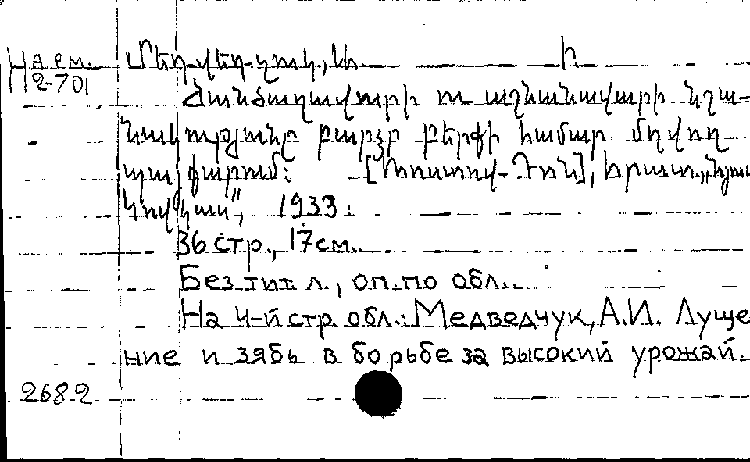 На ем. Մեդվեդչուկ, Ա.Ի.
12-701
Ճանճաղավարի ու աշնանավարի նշա-
նակությանը բարձր բերքի համար մղվող
պայքարում: [Ռոստով-Դոն], Հրատ. „Նյու
կովկաս“, 1933.
36 стр., 17см.
Без тит л., оп. по обл.
На 4-й стр. обл.: Медведчук, А.И. Луще
ние и зябь в борьбе за высокий урожай.
2682